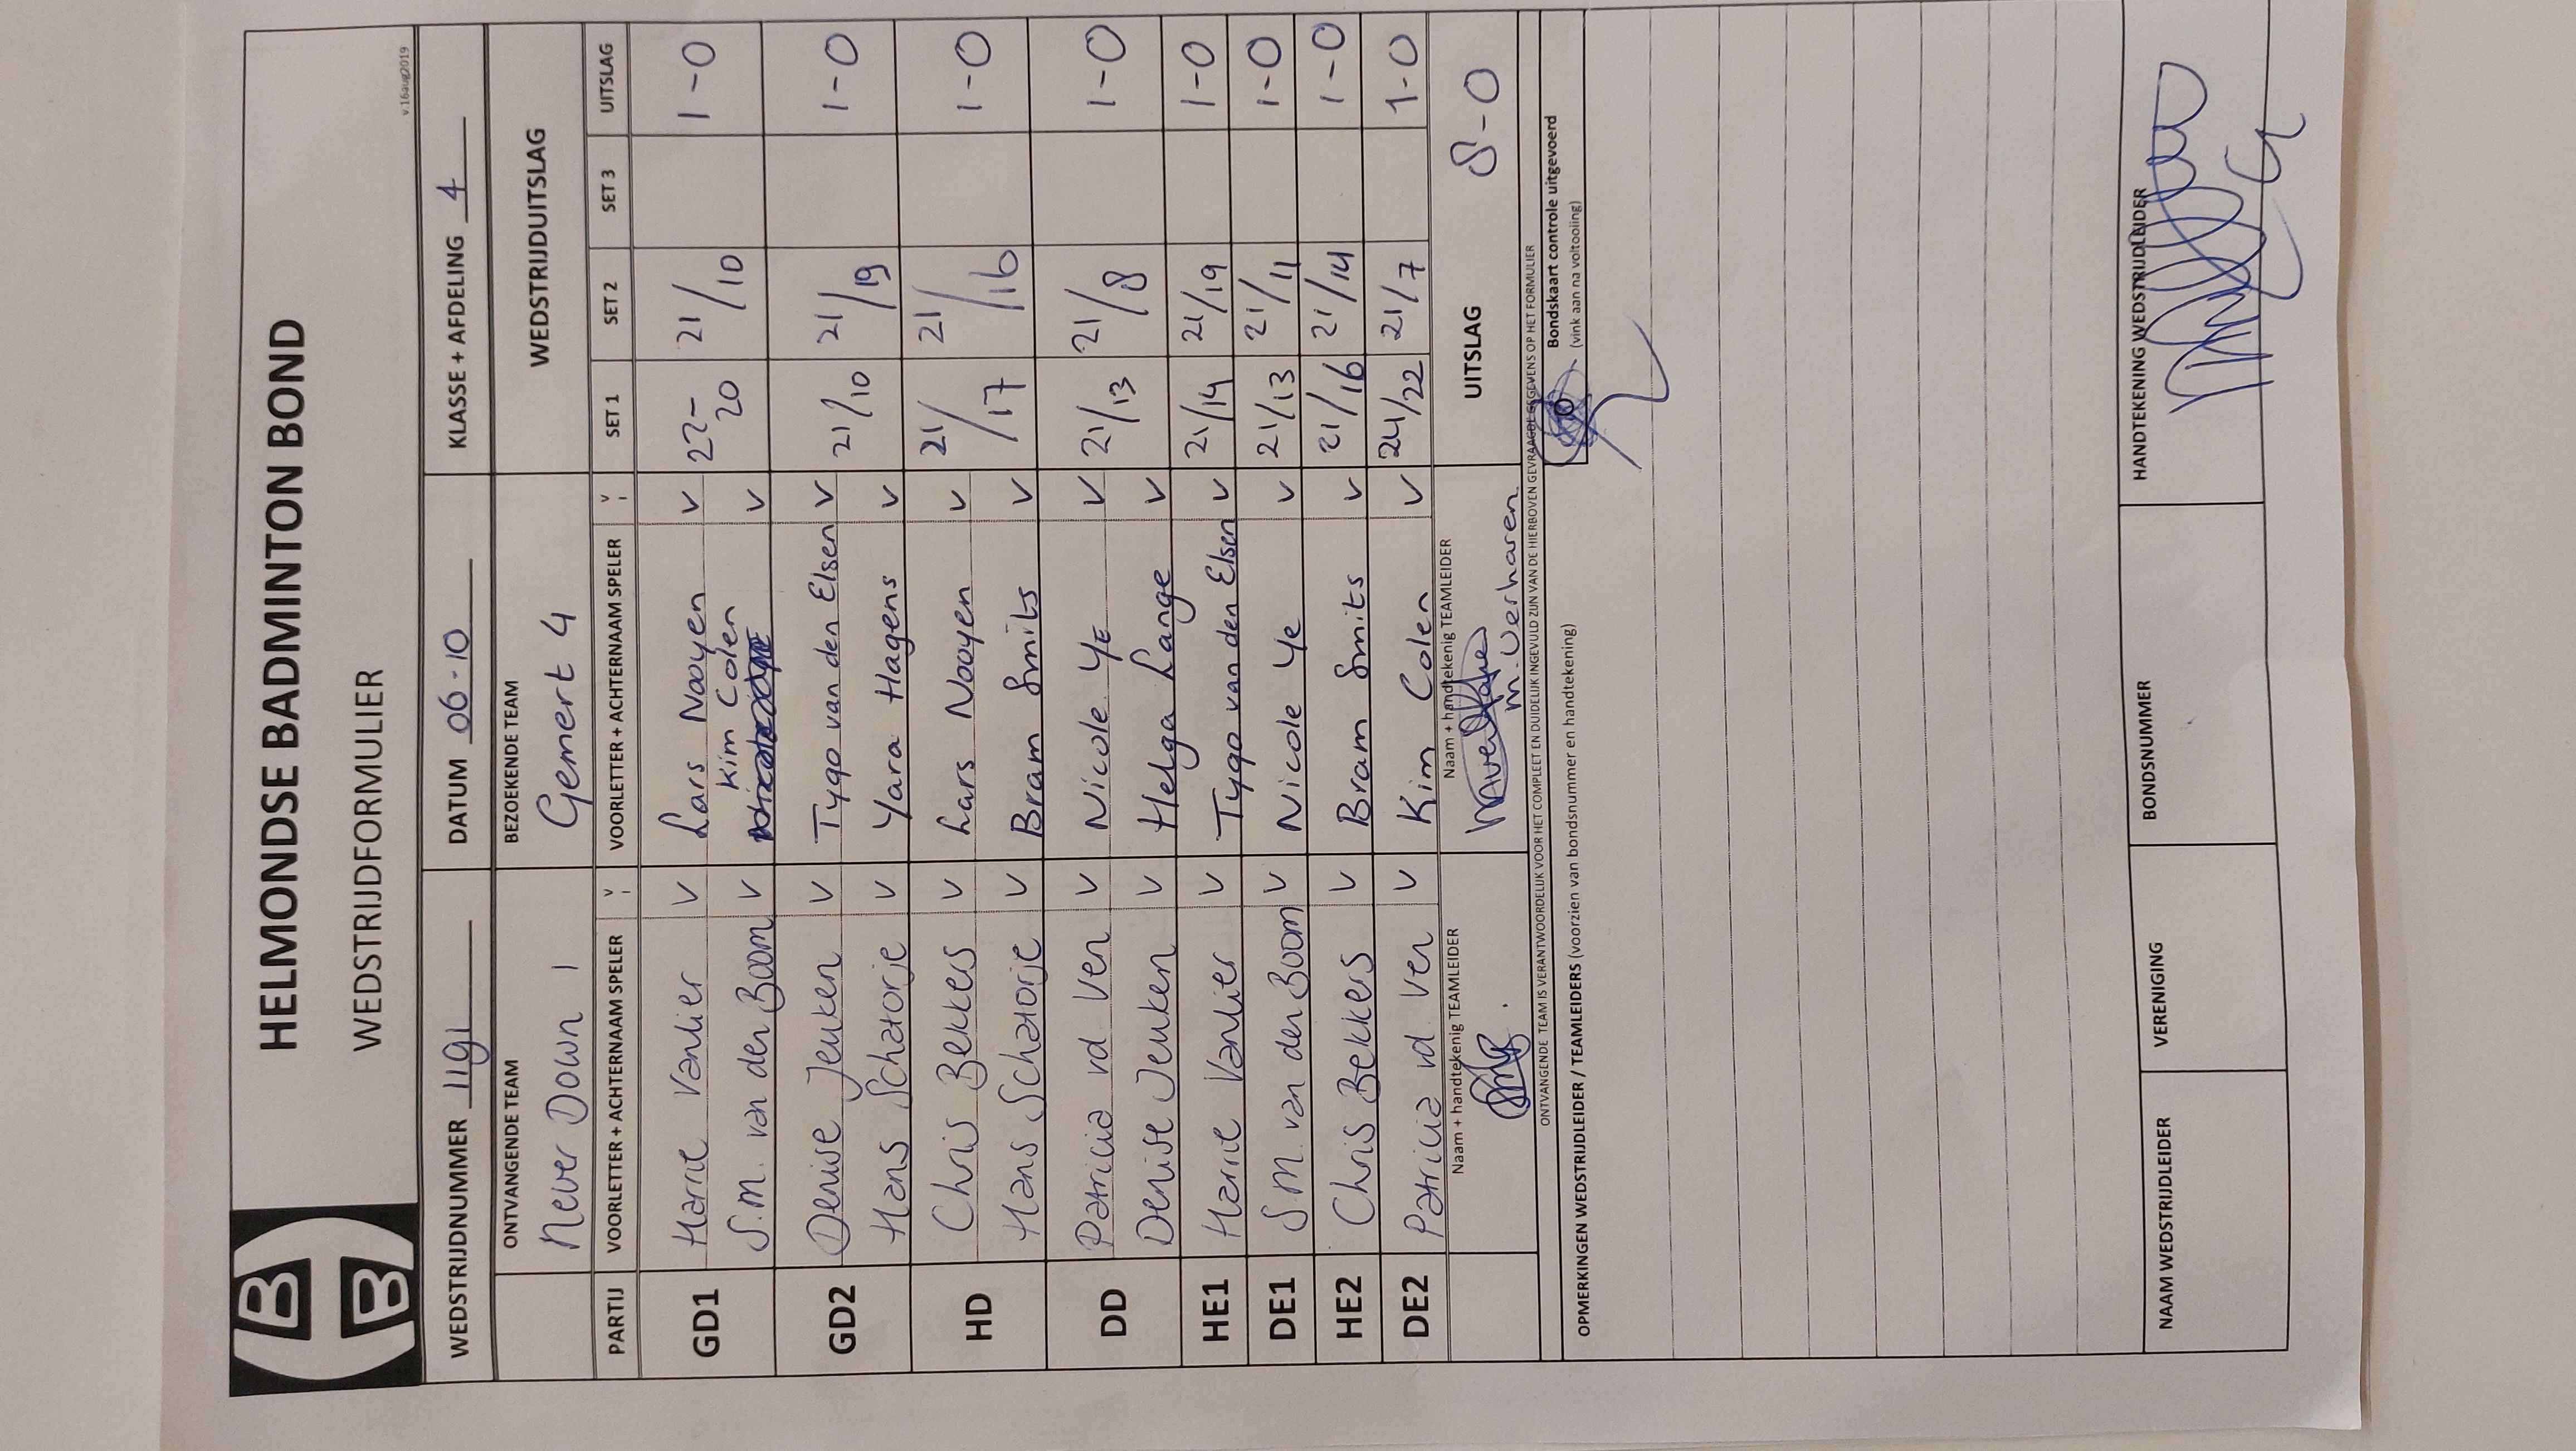 HELMONDSE BADMINTON BOND
WEDSTRIJDFORMULIER
v.16aug2019
WEDSTRIJDNUMMER 1191 DATUM 06-10 KLASSE + AFDELING 4
ONTVANGENDE TEAM BEZOEKENDE TEAM WEDSTRIJDUITSLAG
Never Down 1 Gemert 4
PARTIJ VOORLETTER + ACHTERNAAM SPELER V VOORLETTER + ACHTERNAAM SPELER V SET 1 SET 2 SET 3 UITSLAG
GD1 Harrie Vanlier V Lars Nooyen V 22-20 21/10 1-0
S.M. van den Boom V Kim Colen V
GD2 Denise Jeuken V Tygo van den Elsen V 21/10 21/19 1-0
Hans Schatorje V Yara Hagens V
HD Chris Bekkers V Lars Nooyen V 21/17 21/16 1-0
Hans Schatorje V Bram Smits V
DD Patricia vd Ven V Nicole Ye V 21/13 21/8 1-0
Denise Jeuken V Helga Lange V
HE1 Harrie Vanlier V Tygo van den Elsen V 21/14 21/19 1-0
DE1 S.M. van den Boom V Nicole Ye V 21/13 21/11 1-0
HE2 Chris Bekkers V Bram Smits V 21/16 21/14 1-0
DE2 Patricia vd Ven V Kim Colen V 24/22 21/7 1-0
Naam + handtekenig TEAMLEIDER Naam + handtekenig TEAMLEIDER UITSLAG 8-0
M. Verharen
ONTVANGENDE TEAM IS VERANTWOORDELIJK VOOR HET COMPLEET EN DUIDELIJK INGEVULD ZIJN VAN DE HIERBOVEN GEVRAAGDE GEGEVENS OP HET FORMULIER
Bondskaart controle uitgevoerd
(vink aan na voltooiing)
OPMERKINGEN WEDSTRIJDLEIDER / TEAMLEIDERS (voorzien van bondsnummer en handtekening)
NAAM WEDSTRIJDLEIDER VERENIGING BONDSNUMMER HANDTEKENING WEDSTRIJDLEIDER